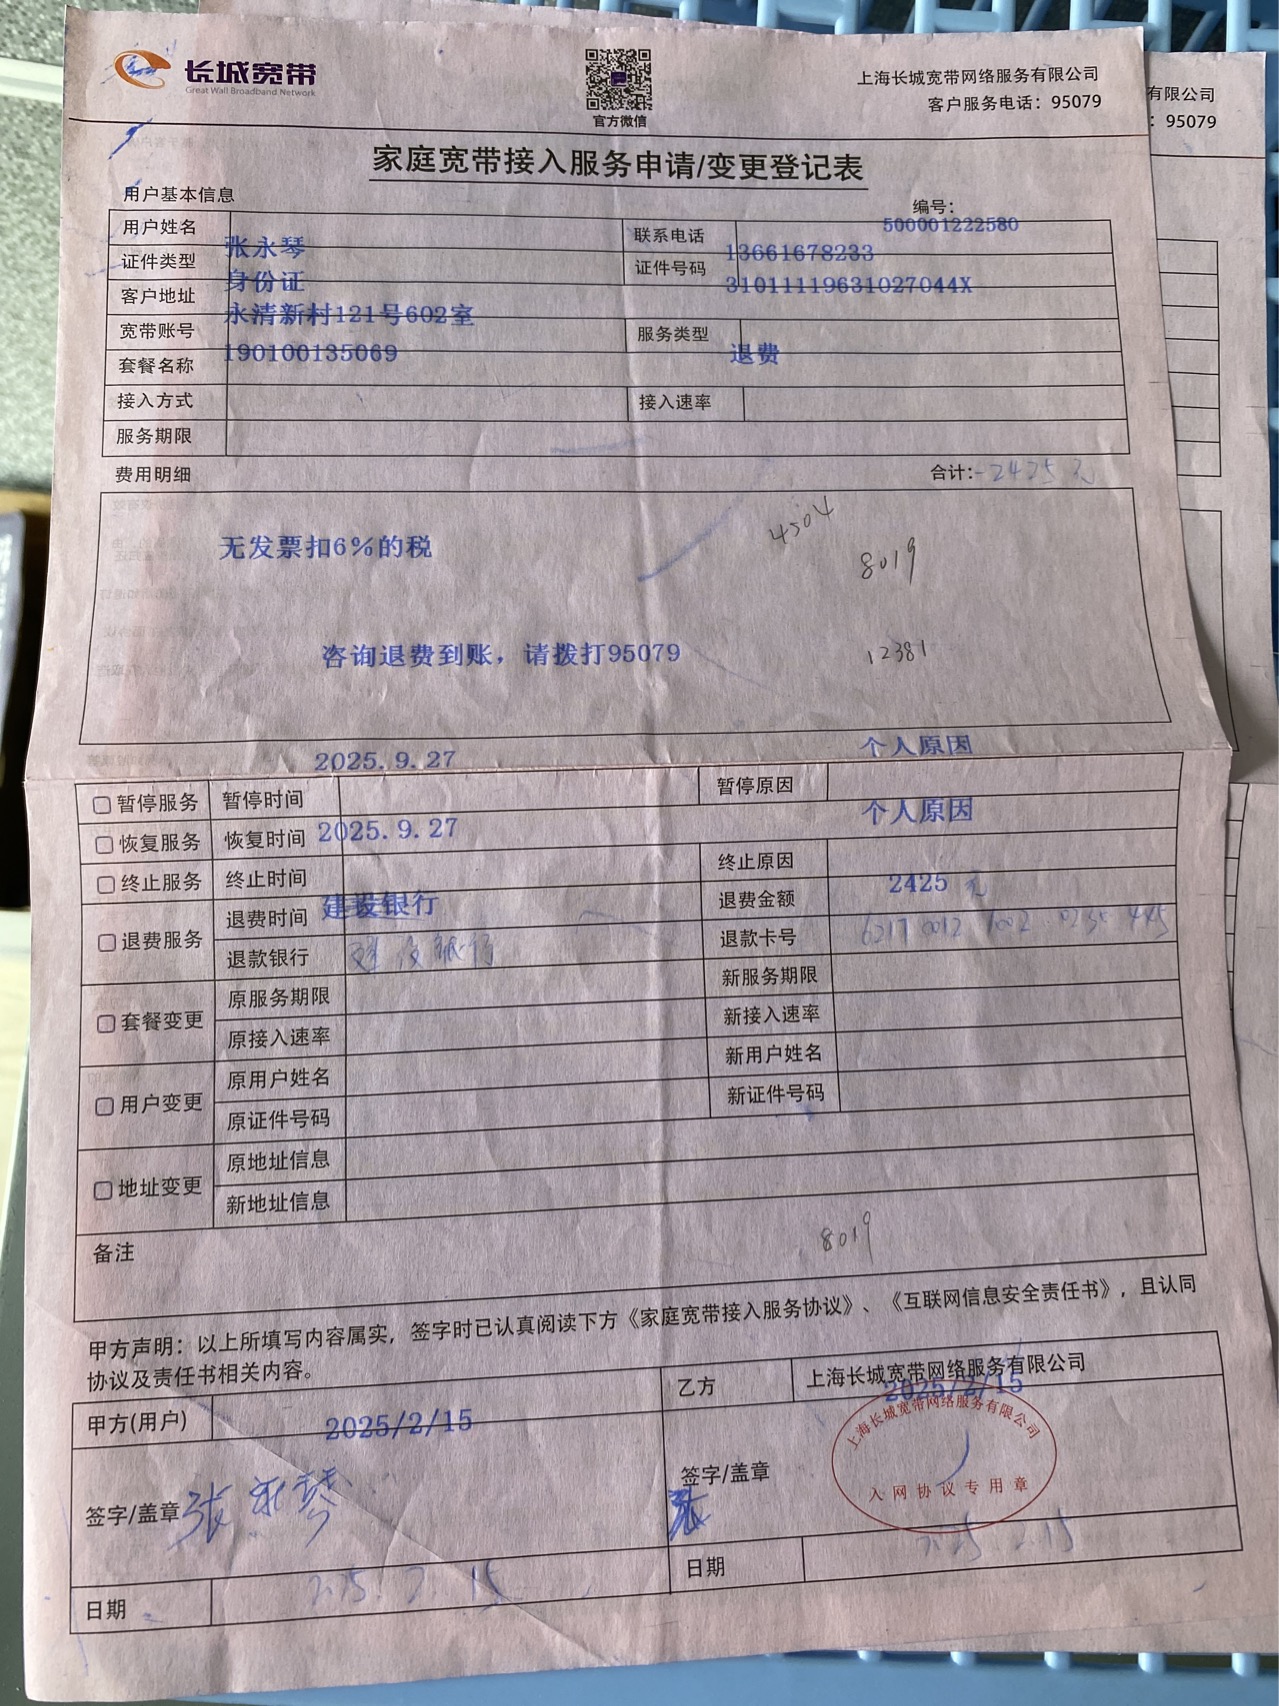 长城宽带
Great Wall Broadband Network
官方微信
上海长城宽带网络服务有限公司
客户服务电话：95079
有限公司
：95079
家庭宽带接入服务申请/变更登记表
用户基本信息
编号：
500001222580
用户姓名 张永琴 联系电话 13661678233
证件类型 身份证 证件号码 31011119631027044X
客户地址 永清新村121号602室
宽带账号 190100135069 服务类型 退费
套餐名称
接入方式 接入速率
服务期限
费用明细 合计：-2425元
4504
无发票扣6%的税 8019
咨询退费到账，请拨打95079 12381
2025.9.27 个人原因
暂停服务 暂停时间 暂停原因
恢复服务 恢复时间 2025.9.27 个人原因
终止服务 终止时间 终止原因
退费服务 退费时间 建设银行 退费金额 2425 元
退款银行 建设银行 退款卡号
套餐变更 原服务期限 新服务期限
原接入速率 新接入速率
用户变更 原用户姓名 新用户姓名
原证件号码 新证件号码
地址变更 原地址信息
新地址信息
备注 8019
甲方声明：以上所填写内容属实，签字时已认真阅读下方《家庭宽带接入服务协议》、《互联网信息安全责任书》，且认同
协议及责任书相关内容。
甲方(用户) 2025/2/15 乙方 上海长城宽带网络服务有限公司
2025/2/15
签字/盖章 张永琴 签字/盖章
张
上海长城宽带网络服务有限公司
入网协议专用章
日期 日期